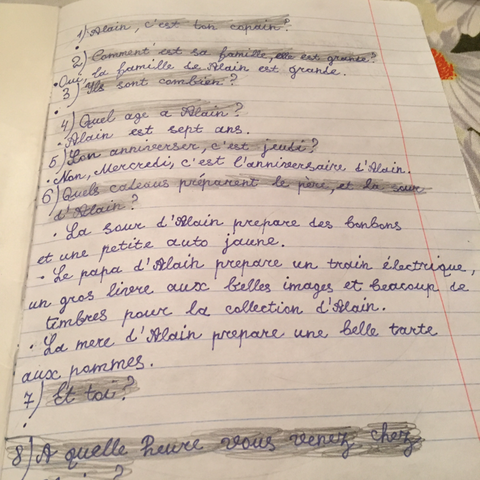 1) Alain, c'est ton copain?
2) Comment est sa famille, est grande?
• Oui, la famille de Alain est grande.
3) Ils sont combien?
4) Quel age a Alain?
• Alain est sept ans.
5) Son anniverser, c'est jeudi?
• Non, Mercredi, c'est l'anniversaire d'Alain.
6) Quels cadeaus préparent le père, et la sour
d'Alain?
• La sour d'Alain prepare des bonbons
et une petite auto jaune.
• Le papa d'Alain prepare un train électrique,
un gros livre aux belles images et beacoup de
tembres pour la collection d'Alain.
• La mere d'Alain prepare une belle tarte
aux pommes.
7) Et toi?
8) A quelle heure vous venez chez